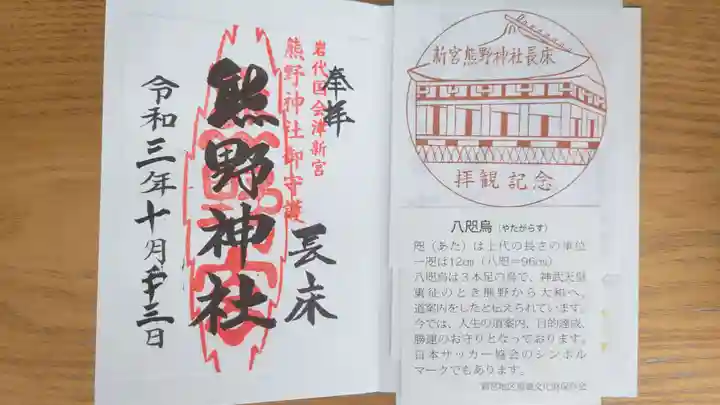 奉拝
岩代国会津新宮
熊野神社御守護
熊野神社
長床
令和三年十月二十三日
新宮熊野神社長床
拝観記念
八咫烏（やたがらす）
咫（あた）は上代の長さの単位
一咫は12㎝（八咫＝96㎝）
八咫烏は３本足の烏で、神武天皇
東征のとき熊野から大和へ、
道案内をしたと伝えられています。
今では、人生の道案内、目的達成、
勝運のお守りとなっております。
日本サッカー協会のシンボル
マークでもあります。